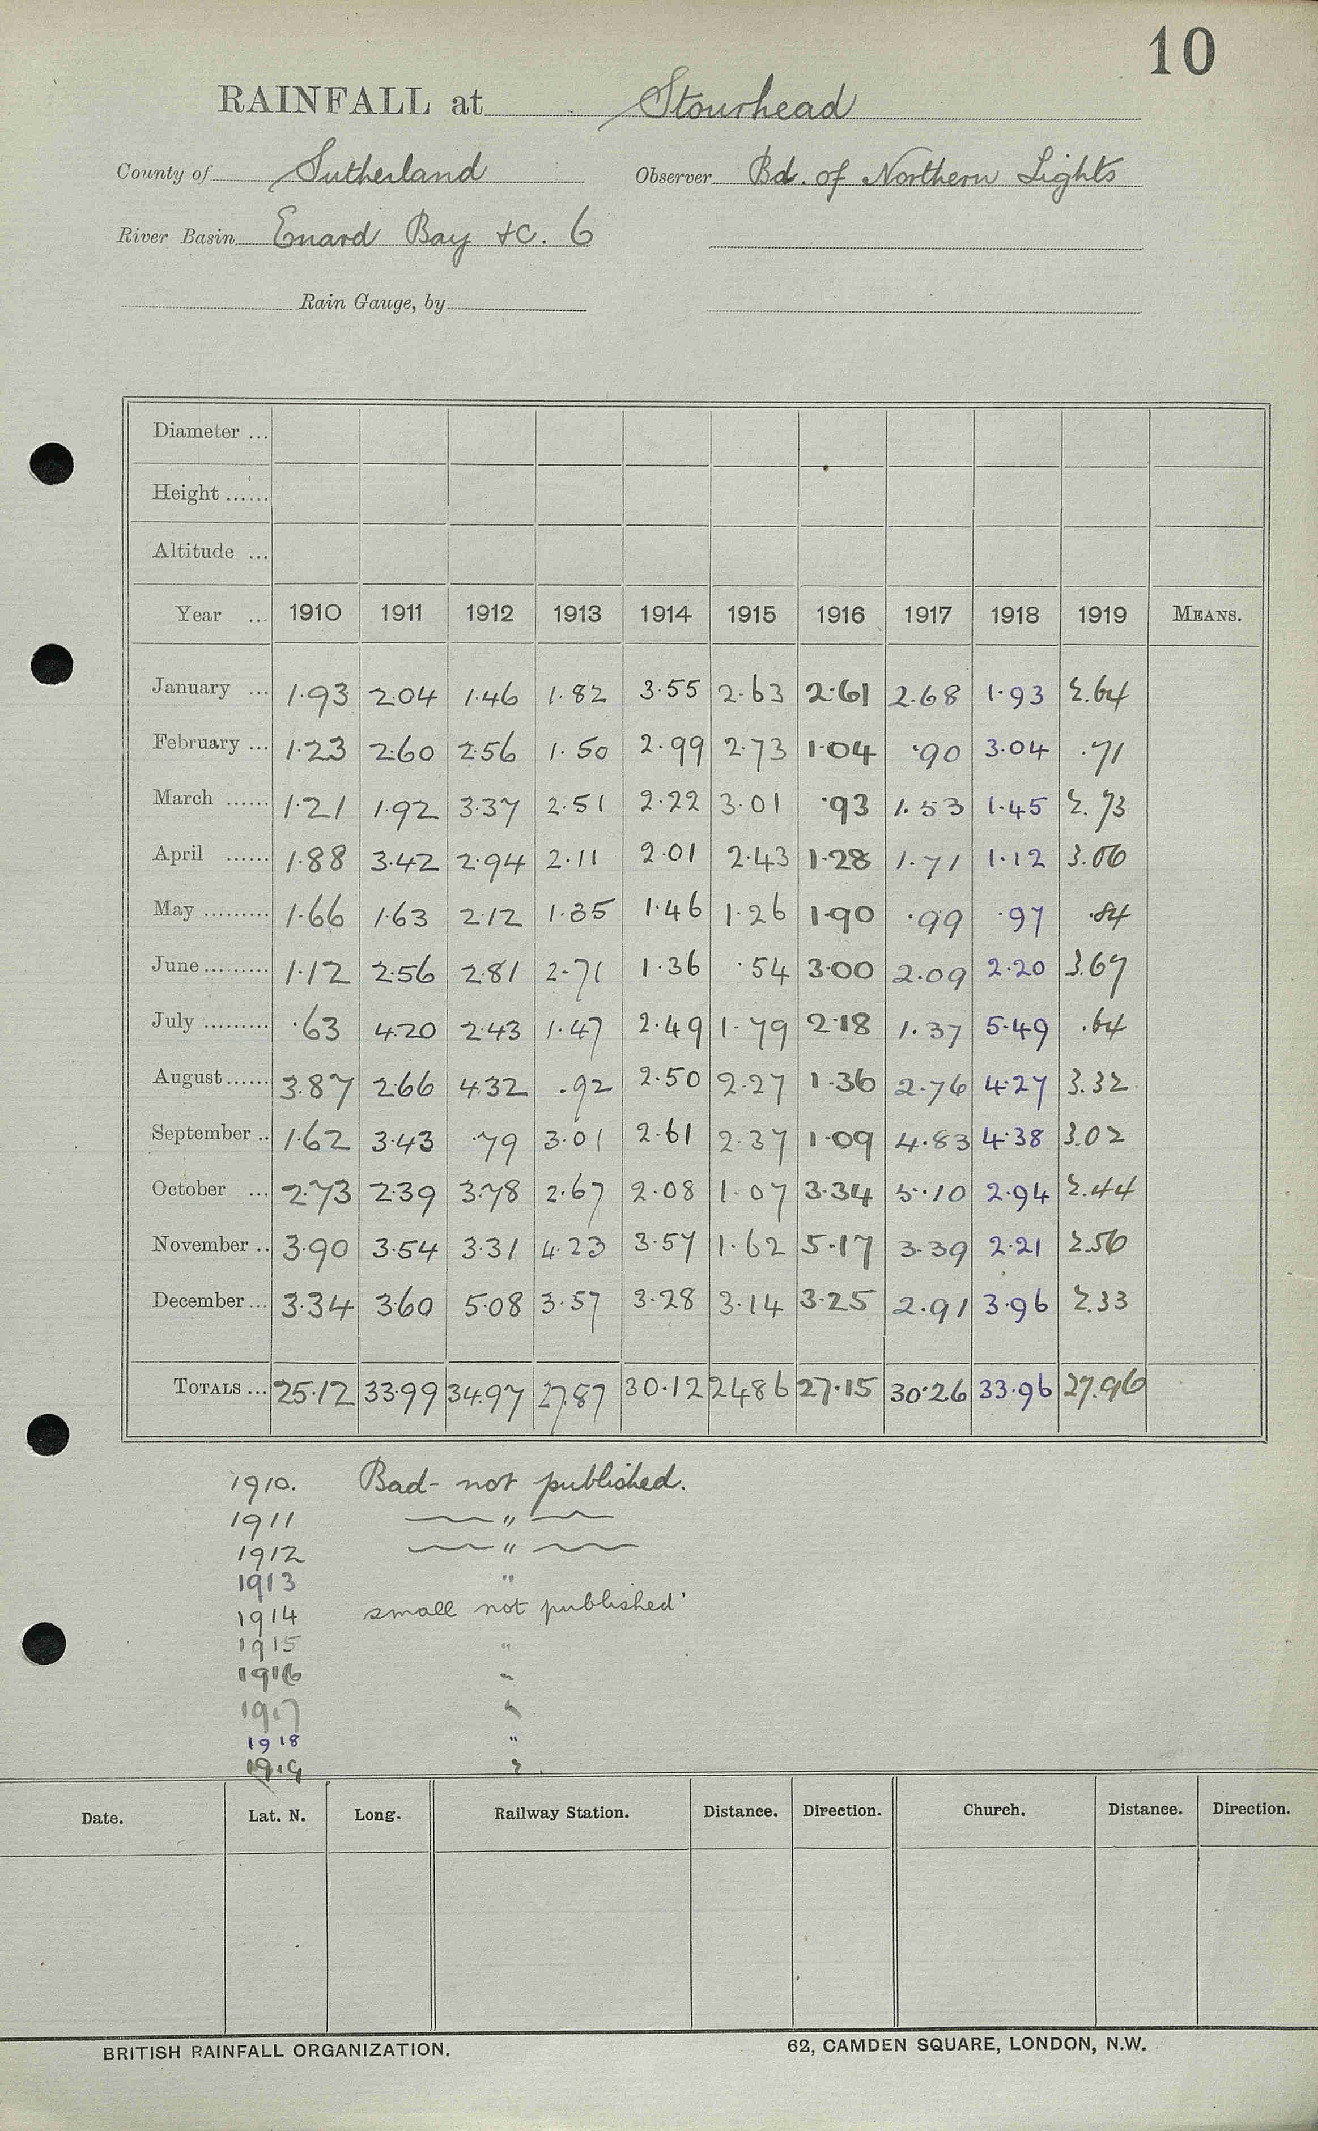 10
RAINFALL at Stourhead
County of Sutherland Observer Bd. of Northern Lights
River Basin Enard Bay &C. 6
Rain Gauge, by
Diameter ...
Height ......
Altitude ...
Year ... 1910 1911 1912 1913 1914 1915 1916 1917 1918 1919 MEANS.
January ... 1.93 2.04 1.46 1.82 3.55 2.63 2.61 2.68 1.93 2.64
February ... 1.23 2.60 2.56 1.50 2.99 2.73 1.04 .90 3.04 .71
March ...... 1.21 1.92 3.37 2.51 2.22 3.01 .93 1.53 1.45 2.73
April ...... 1.88 3.42 2.94 2.11 2.01 2.43 1.28 1.71 1.12 3.06
May ......... 1.66 1.63 2.12 1.35 1.46 1.26 1.90 .99 .97 .84
June ......... 1.12 2.56 2.81 2.71 1.36 .54 3.00 2.09 2.20 3.67
July ......... .63 4.20 2.43 1.47 2.49 1.79 2.18 1.37 5.49 .64
August ...... 3.87 2.66 4.32 .92 2.50 2.27 1.36 2.76 4.27 3.32
September .. 1.62 3.43 .79 3.01 2.61 2.37 1.09 4.83 4.38 3.02
October ... 2.73 2.39 3.78 2.67 2.08 1.07 3.34 5.10 2.94 2.44
November .. 3.90 3.54 3.31 4.23 3.57 1.62 5.17 3.39 2.21 2.56
December ... 3.34 3.60 5.08 3.57 3.28 3.14 3.25 2.91 3.96 2.33
TOTALS ... 25.12 33.99 34.97 27.87 30.12 24.86 27.15 30.26 33.96 27.96
1910. Bad - not published.
1911 "
1912 "
1913 "
1914 small not published.
1915 "
1916 "
1917 "
1918 "
1919 "
Date. Lat. N. Long. Railway Station. Distance. Direction. Church. Distance. Direction.
BRITISH RAINFALL ORGANIZATION. 62, CAMDEN SQUARE, LONDON, N.W.